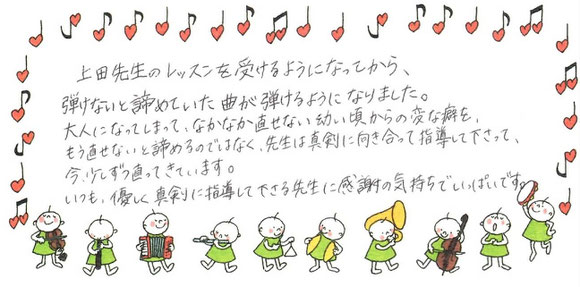 上田先生のレッスンを受けるようになってから、
弾けないと諦めていた曲が弾けるようになりました。
大人になってしまって、なかなか直せない幼い頃からの変な癖を、
もう直せないと諦めるのではなく、先生は真剣に向き合って指導して下さって、
今、少しずつ直ってきています。
いつも、優しく真剣に指導して下さる先生に感謝の気持ちでいっぱいです。